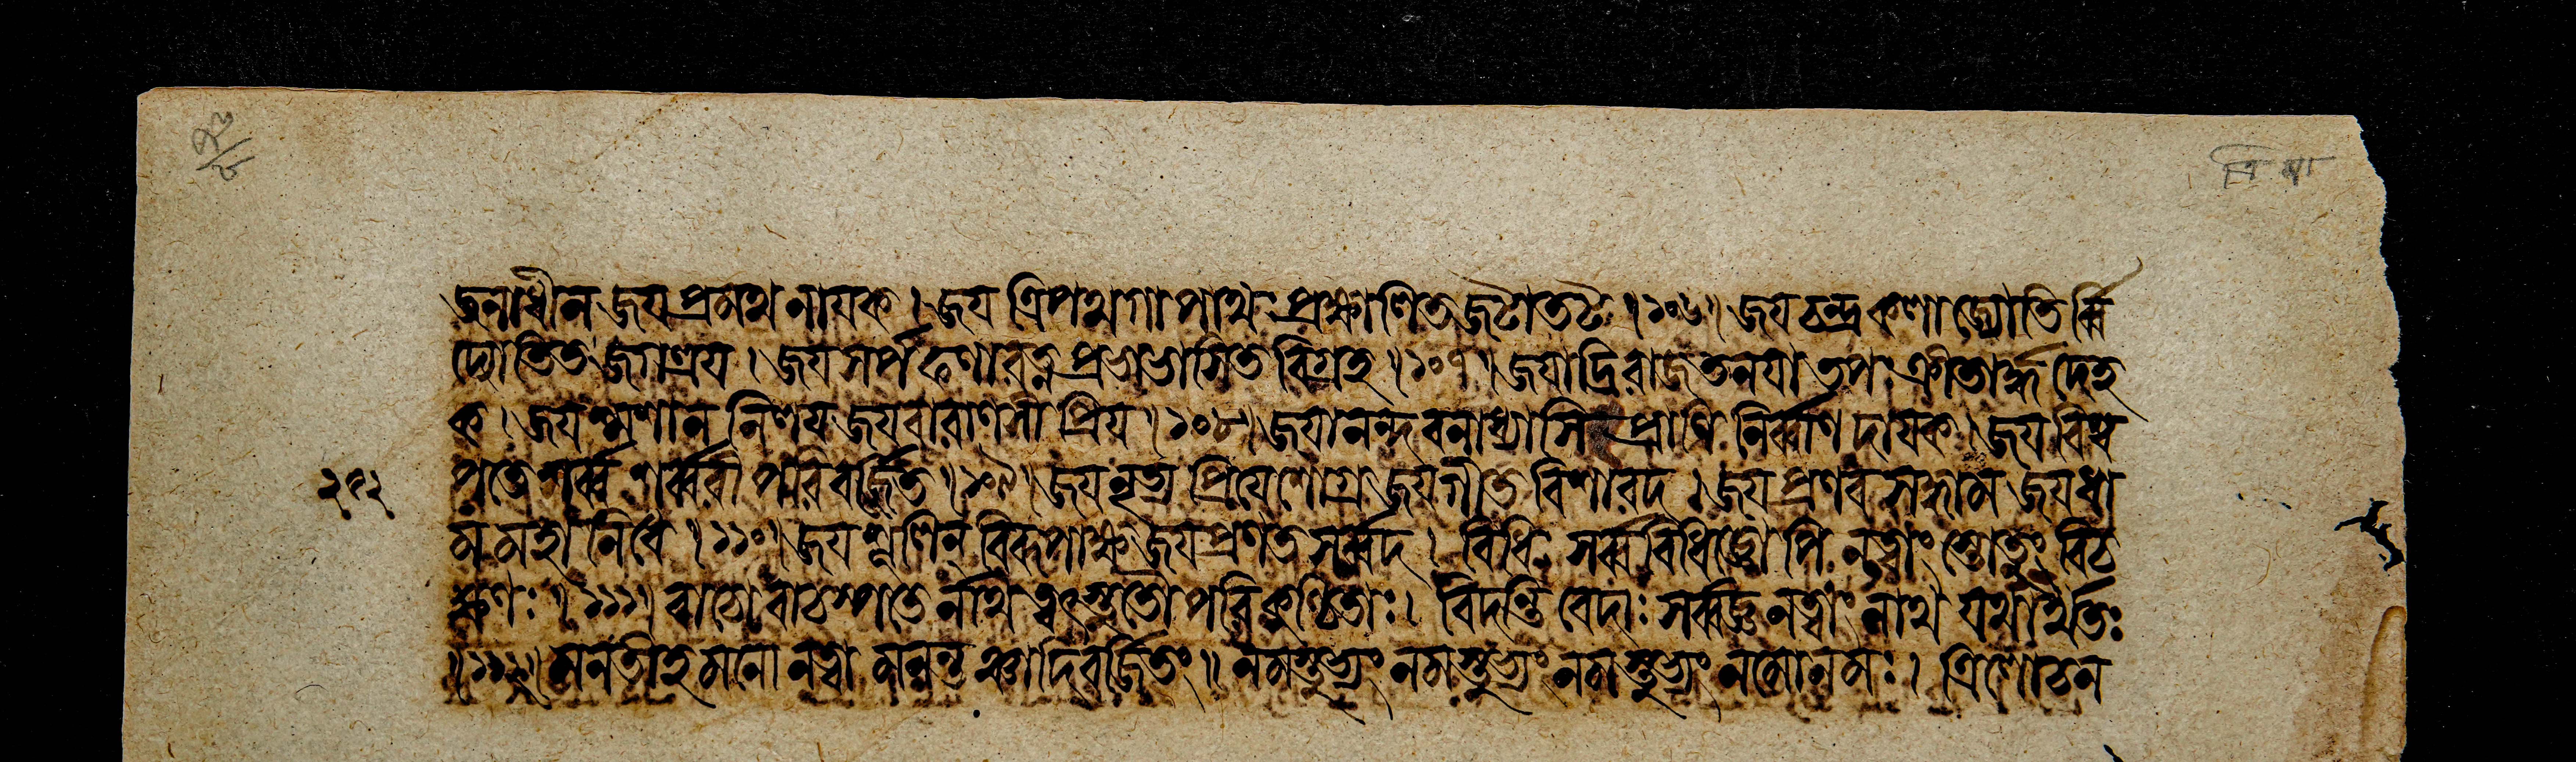 জনাধীন জয প্রমথনাযক । জয ত্রিপথগাপাথঃ প্রক্ষালিতজটাতট ॥ ১০৬ ॥ জয চন্দ্রকলাজ্যোতির্ব্বি
দ্যোতিতজগত্রয । জয সর্পফণারত্নপ্রভাভাসিতবিগ্রহ ॥ ১০৭ ॥ জযাদ্রিরাজতনযাতপঃক্রীতার্দ্ধদেহ
ক । জয শ্মশাননিলয জয বারাণসীপ্রিয ॥ ১০৮ ॥ জযানন্দবনাধ্যাসি প্রাণিনির্ব্বাণদাযক । জয বিশ্ব
পতে শর্ব্ব শর্ব্বরীপরিবর্জ্জিত ॥ ১০৯ ॥ জয নৃত্যপ্রিযেশোগ্র জয গীতবিশারদ । জয প্রণবসদ্ধাম জয ধা
২৭২
মমহানিধে ॥ ১১০ ॥ জয শূলিন্ বিরূপাক্ষ জয প্রণতসর্ব্বদ । বিধিঃ সর্ব্ববিধিজ্ঞোপি ন ত্বাং স্তোতুং বিচ
ক্ষণঃ ॥ ১১১ ॥ বাচো বাচস্পতের্নাথ ত্বৎস্তুতৌ পরিকুণ্ঠিতাঃ । বিদন্তি বেদাঃ সর্ব্বজ্ঞ ন ত্বাং নাথ যথার্থতঃ
॥ ১১২ ॥ মনতীহ মনো ন ত্বামনন্তঞ্চাদিবর্জ্জিতং ॥ নমস্তুভ্যং নমস্তুভ্যং নমস্তুভ্যং নমোনমঃ । ত্রিলোচন